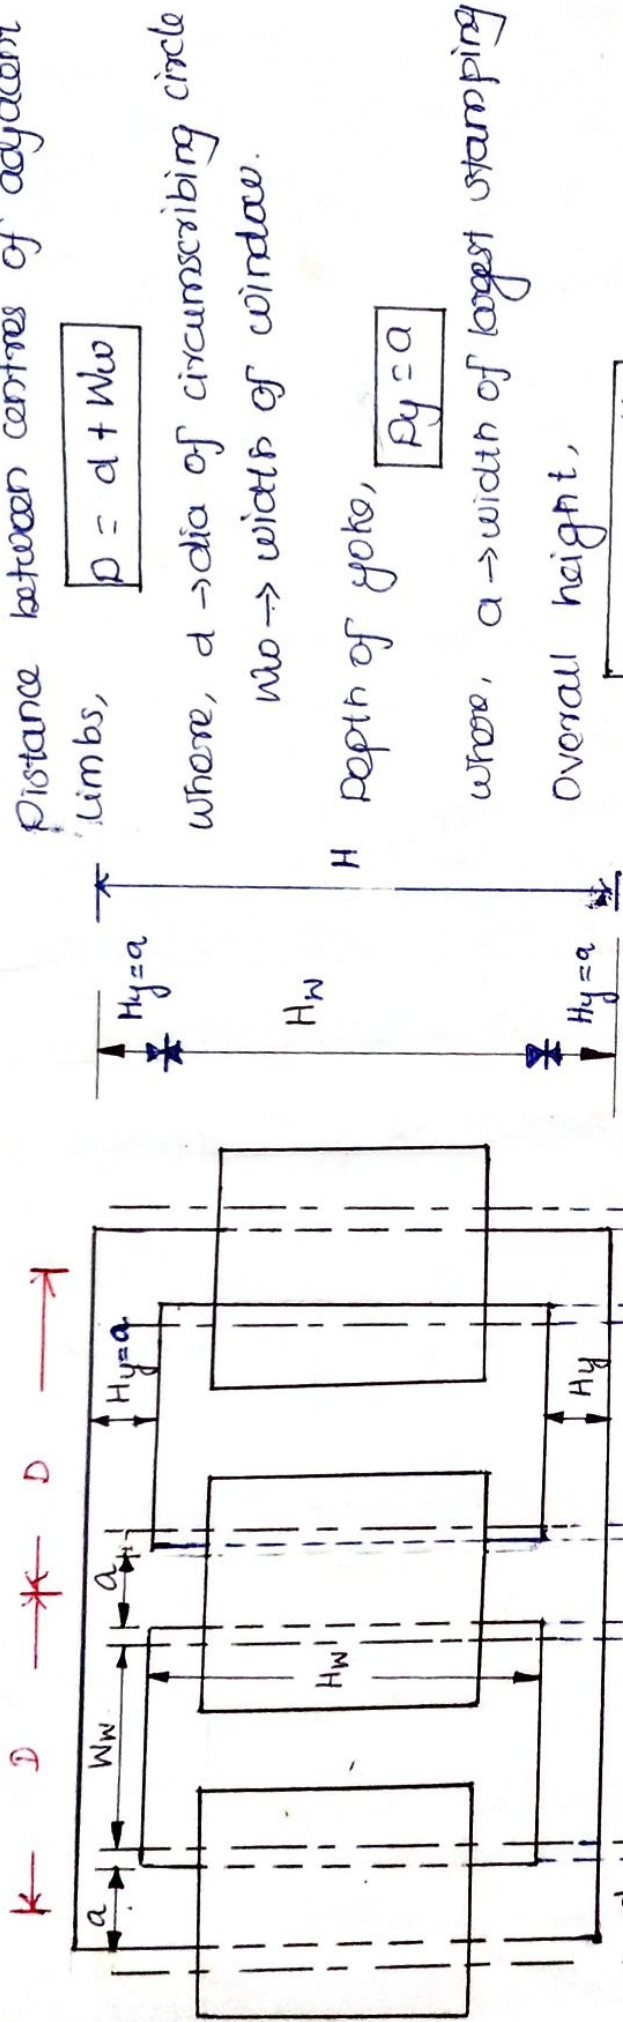 Distance between centres of adjacent
limbs,
D = d + Ww
where, d → dia of circumscribing circle
Ww → width of window.
Depth of yoke,
Dy = a
where, a → width of largest stamping
Overall height,
D
D
a
Ww
a
Hy=a
Hw
Hy
Hy=a
Hw
Hy=a
H